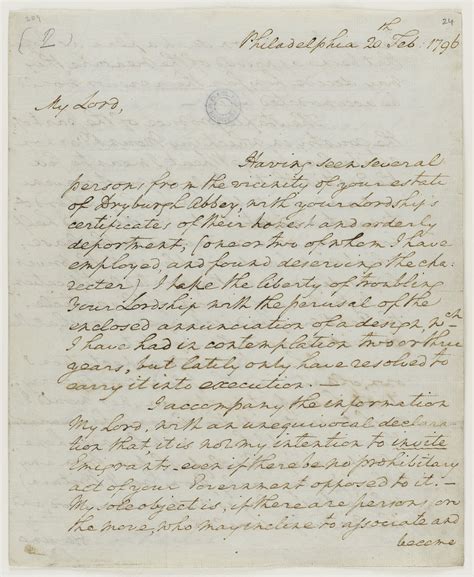 209
24
(2)
Philadelphia 20th Feb: 1796
My Lord,
Having seen several
persons from the vicinity of your estate
of Dryburgh Abbey, with your Lordship's
certificates of their honest and orderly
deportment, (one or two of whom I have
employed, and found deserving the cha-
recter) I take the liberty of troubling
Your Lordship with the perusal of the
enclosed annunciation of a design wch
I have had in contemplation two or three
years, but lately only have resolved to
carry it into execution.
I accompany the information
My Lord, with an unequivocal declara-
tion that, it is not my intention to invite
emigrants, even if there be no prohibitary
act of your Government opposed to it. –
My sole object is, if there are persons on
the move, who may incline to associate and
become